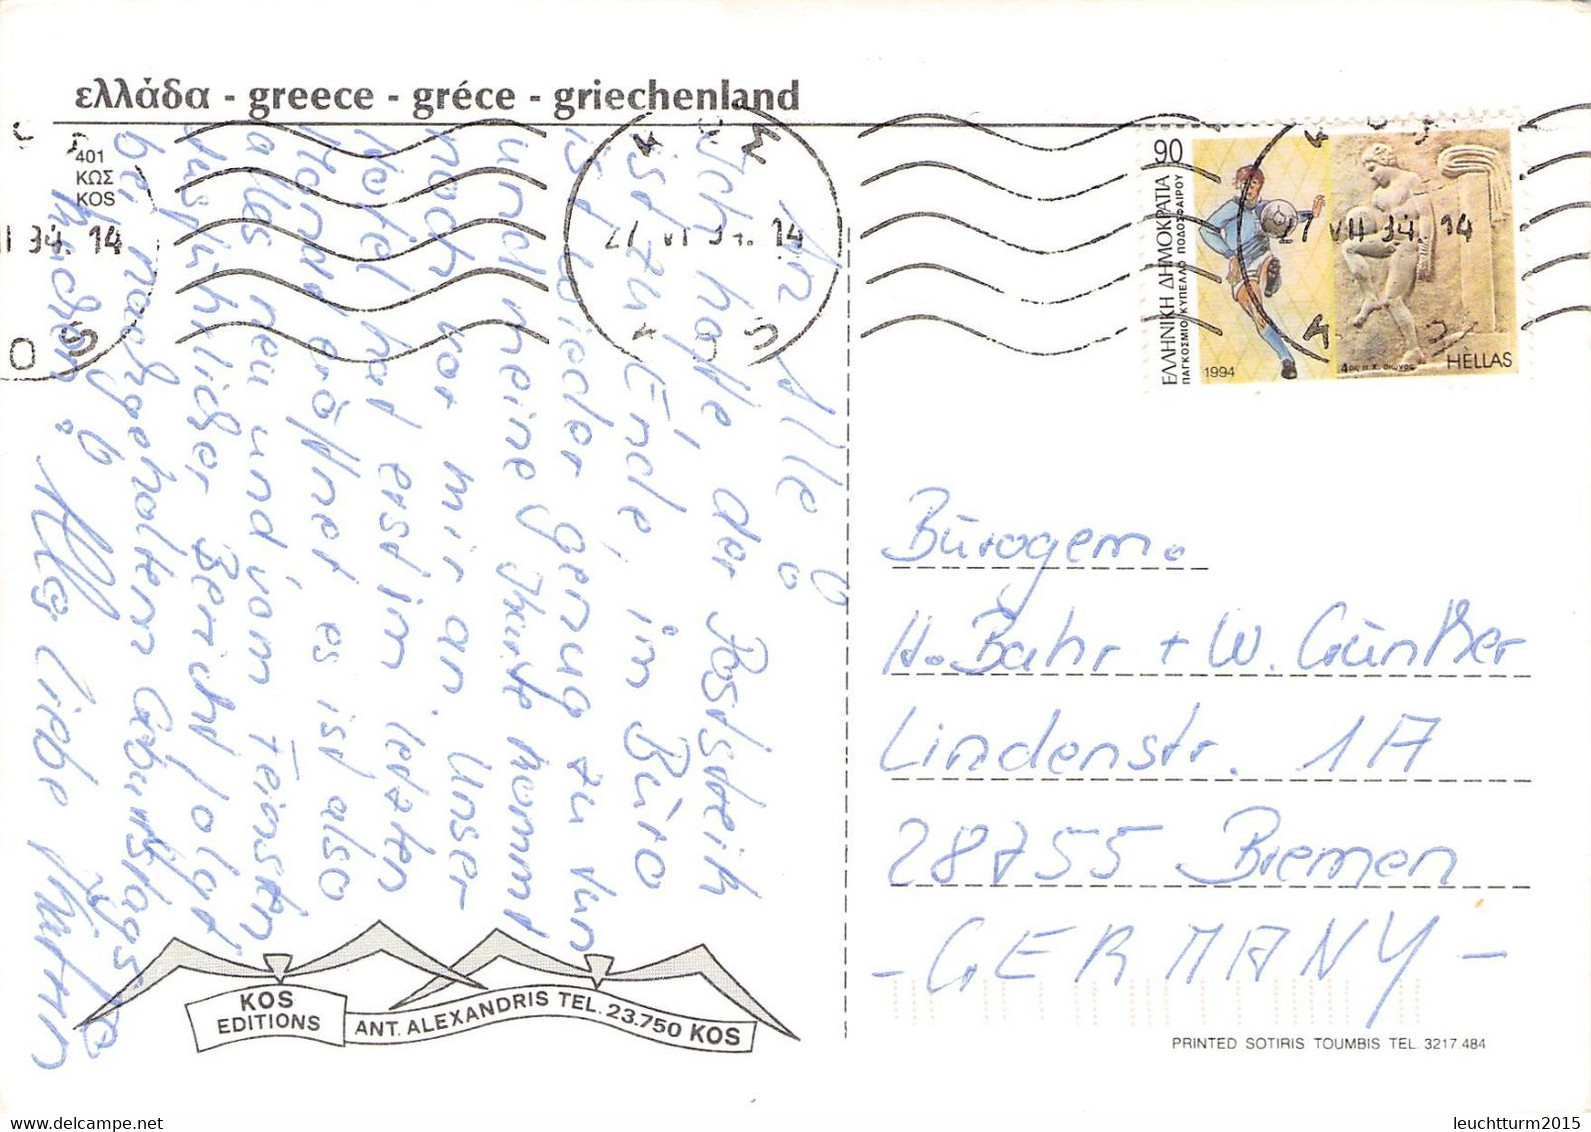 ελλάδα - greece - gréce - griechenland
401
ΚΩΣ
KOS
An Alle!
Ich hoffe, der Poststreik
ist zu Ende, im Büro
ist wieder genug zu tun
und meine Karte kommt
noch vor mir an. Unser
Hotel hat erst im letzten
Monat eröffnet, es ist also
alles neu und vom Feinsten.
Ausführlicher Bericht folgt
bei nachgeholtem Geburtstags-
kuchen!
Alles Liebe
27 VII 94. 14
27 VII 94. 14
ΚΩΣ
KOS
90
ΕΛΛΗΝΙΚΗ ΔΗΜΟΚΡΑΤΙΑ
ΠΑΓΚΟΣΜΙΟ ΚΥΠΕΛΛΟ ΠΟΔΟΣΦΑΙΡΟΥ
1994
4ος π.Χ. αιώνας
HELLAS
Bürogem.
H. Bahr + W. Günther
Lindenstr. 1A
28755 Bremen
- GERMANY -
KOS
EDITIONS
ANT. ALEXANDRIS TEL. 23.750 KOS
PRINTED SOTIRIS TOUMBIS TEL. 3217.484
leuchtturm2015